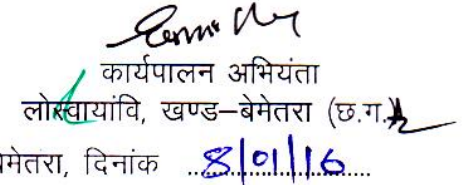 कार्यपालन अभियंता
लोस्वायांवि, खण्ड–बेमेतरा (छ.ग.)
मेतरा, दिनांक ..8/01/16....